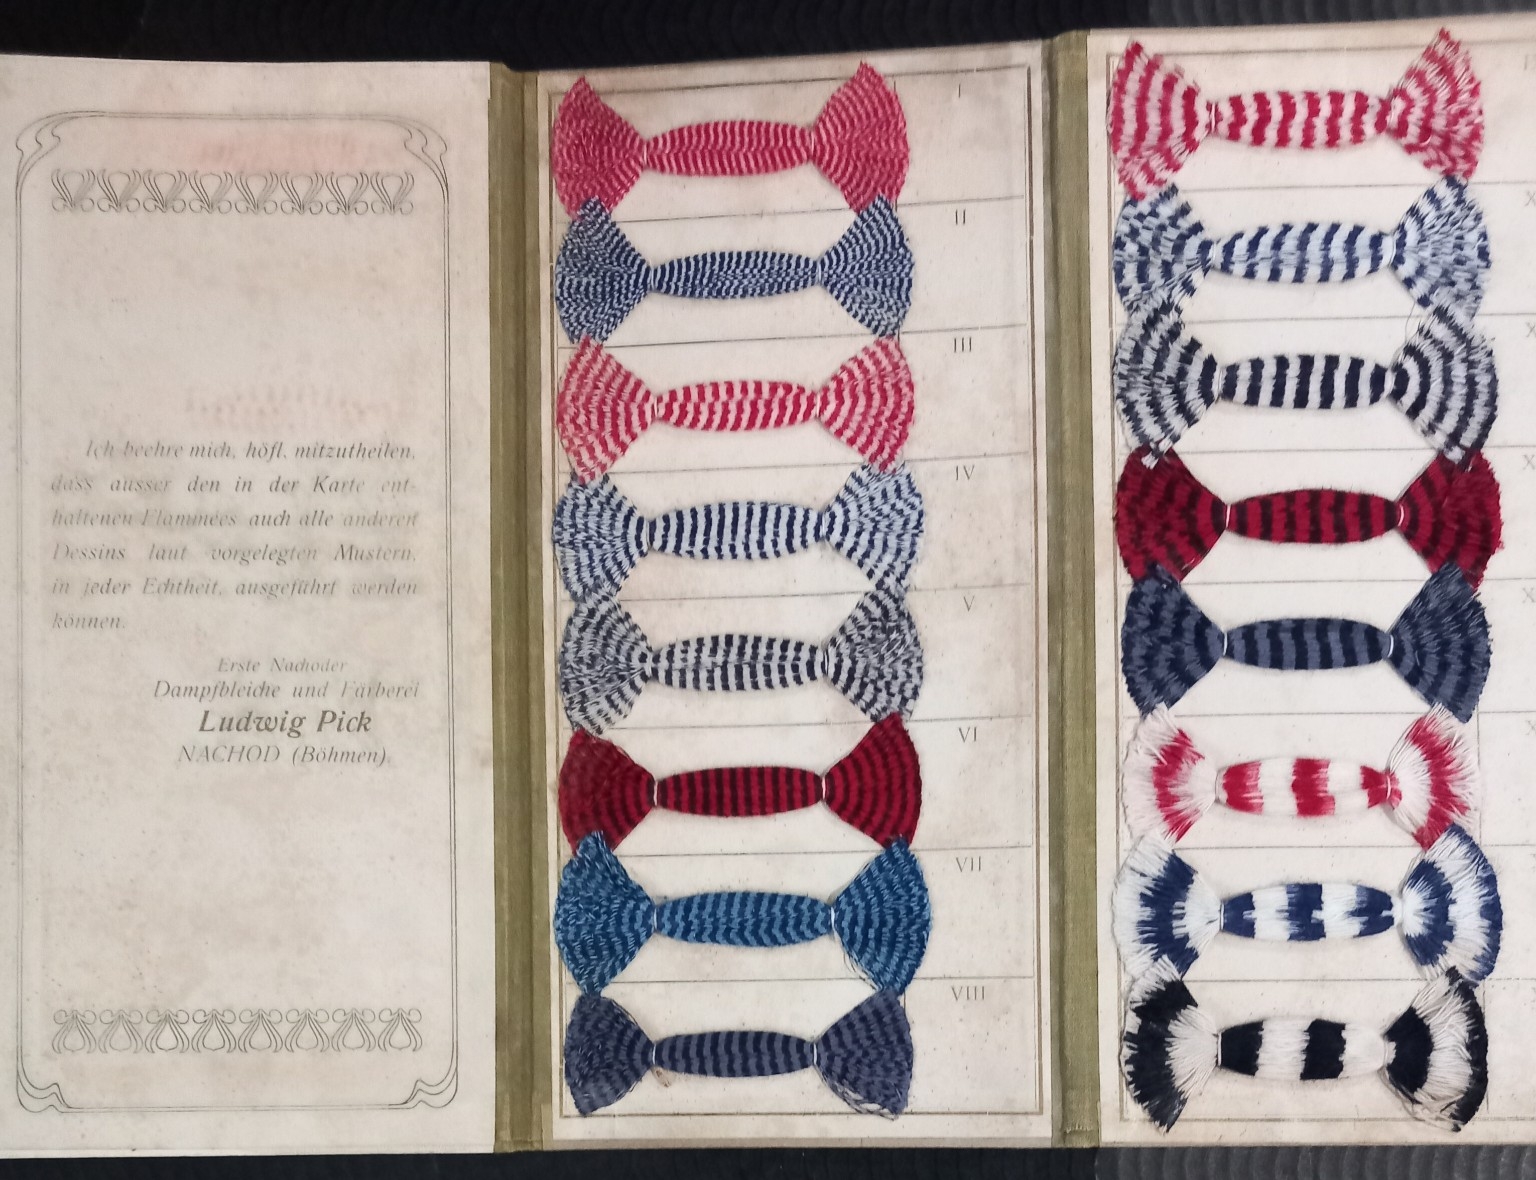 Ich beehre mich, höfl. mitzutheilen,
dass ausser den in der Karte ent-
haltenen Flammées auch alle anderen
Dessins laut vorgelegten Mustern,
in jeder Echtheit, ausgeführt werden
können.
Erste Nachoder
Dampfbleiche und Färberei
Ludwig Pick
NACHOD (Böhmen).
I
II
III
IV
V
VI
VII
VIII